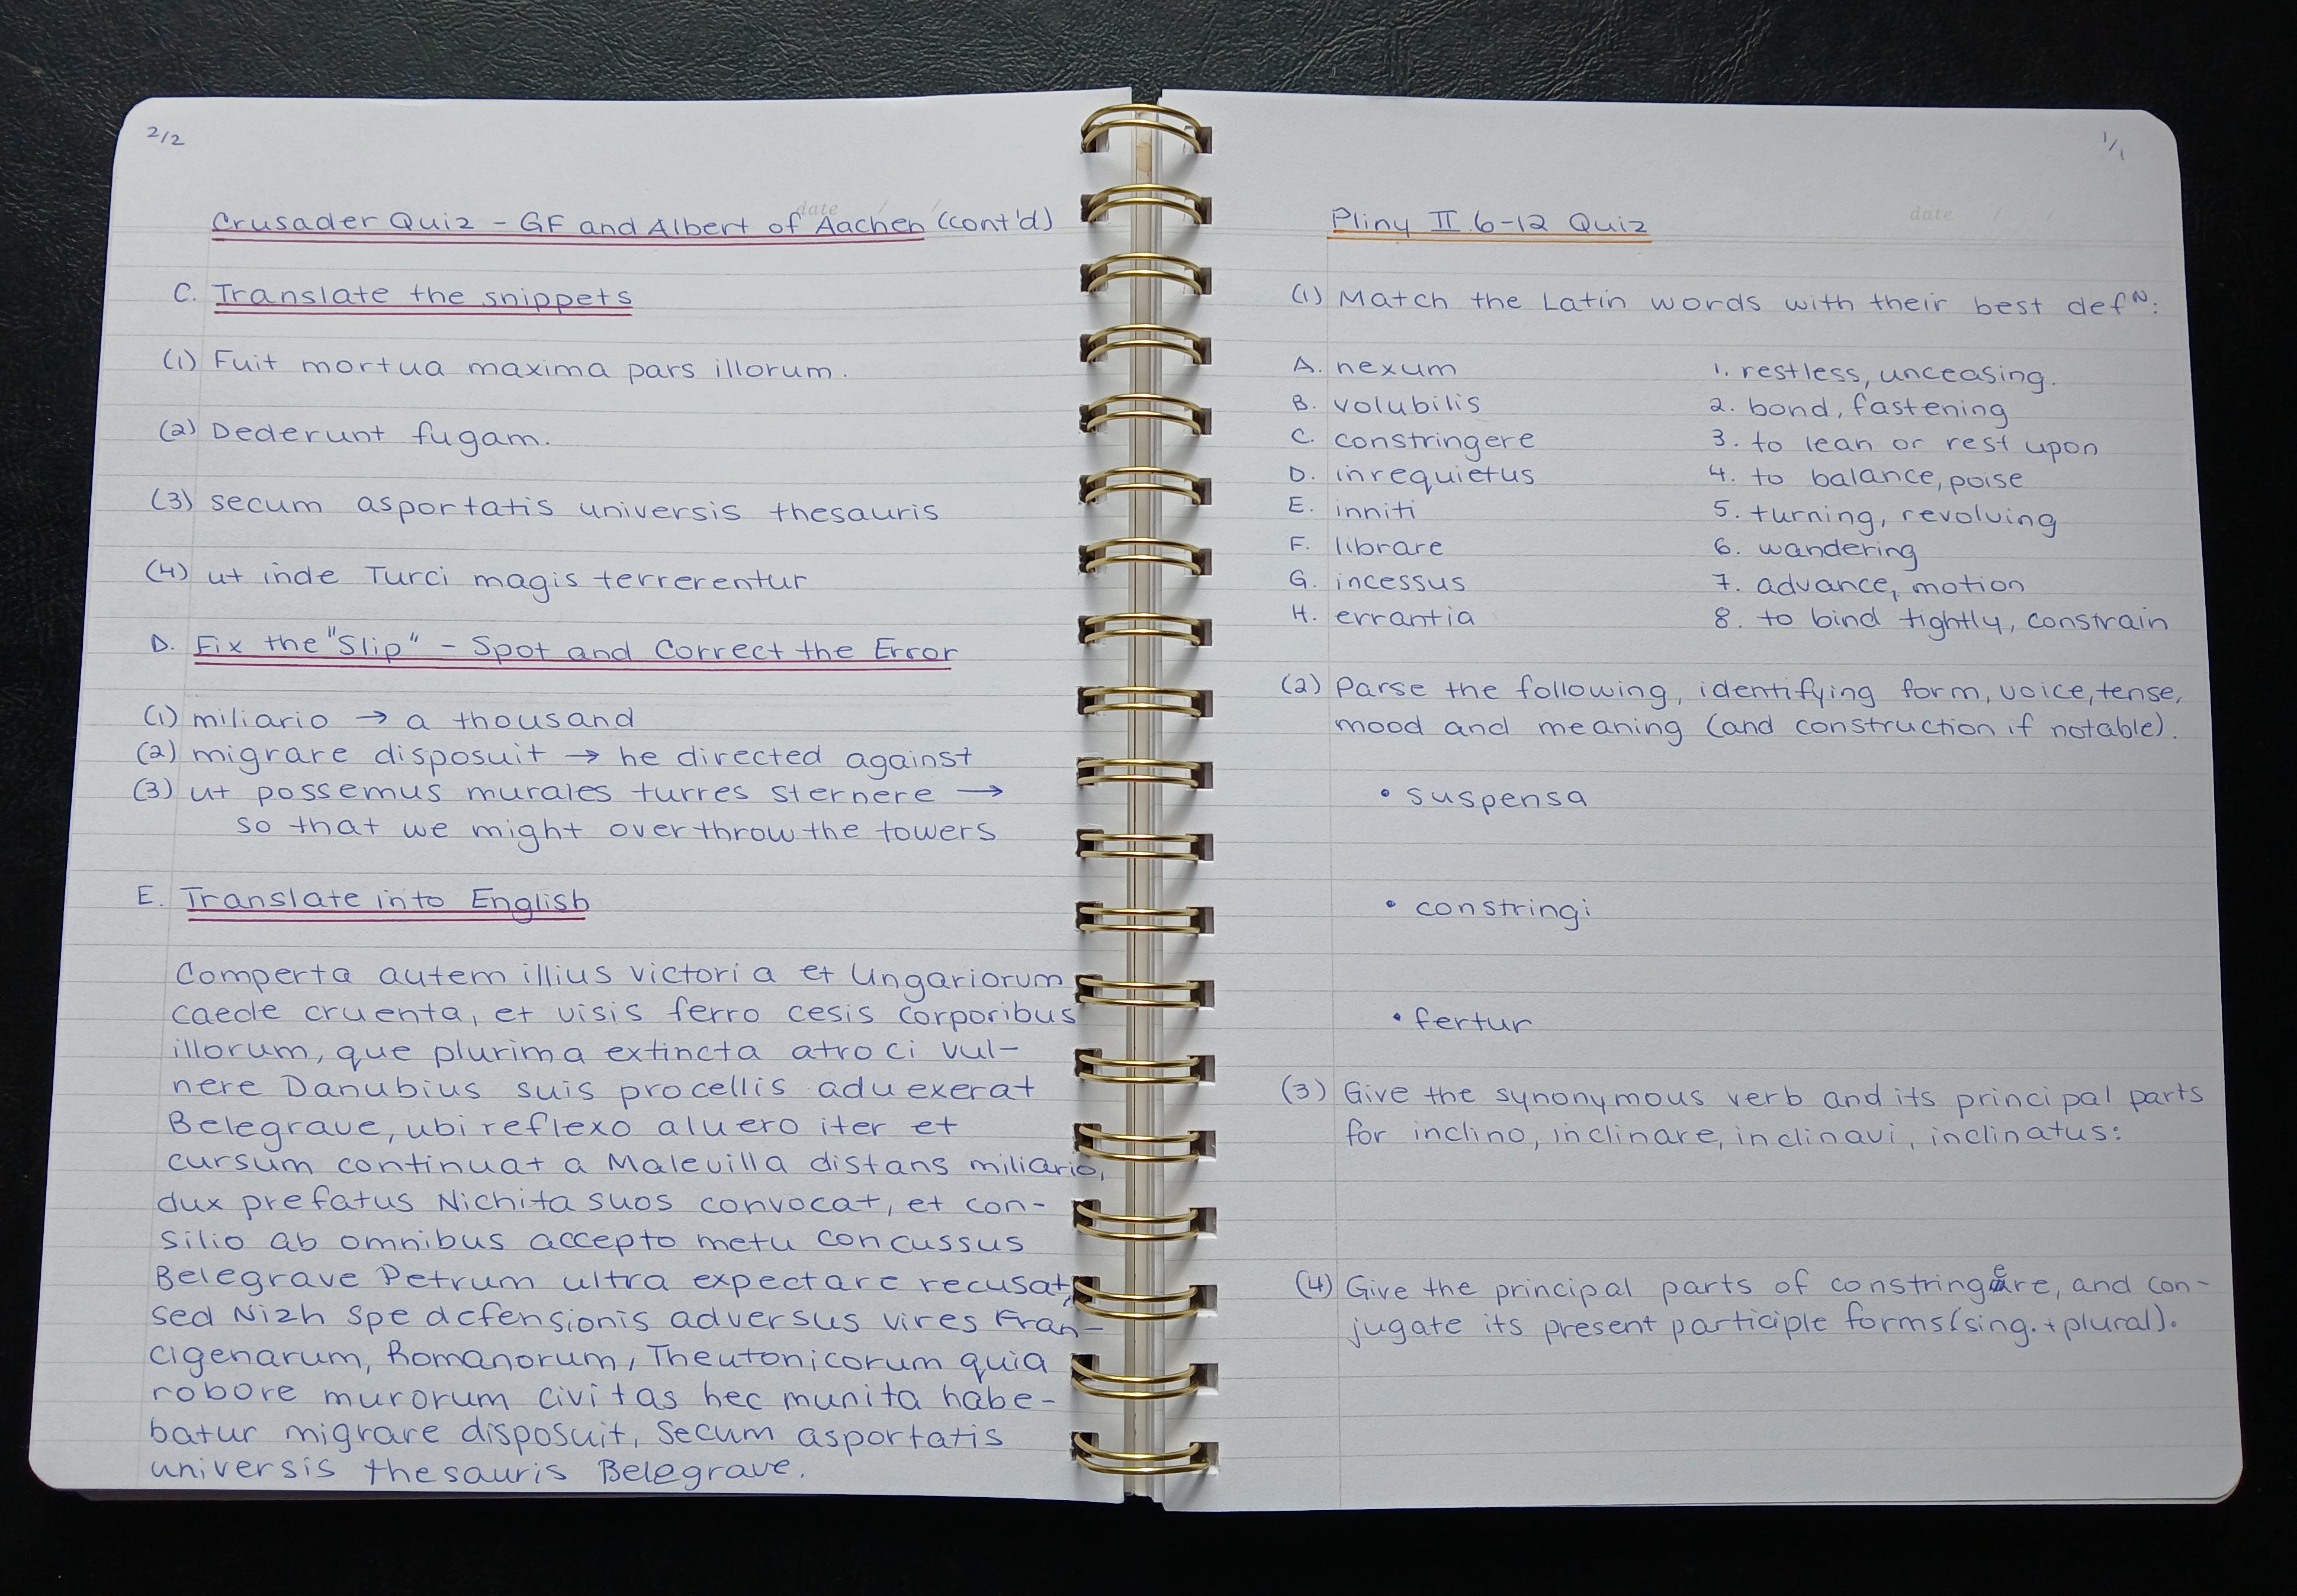 2/2
date / /
Crusader Quiz - GF and Albert of Aachen (cont'd)
C. Translate the snippets
(1) Fuit mortua maxima pars illorum.
(2) Dederunt fugam.
(3) secum asportatis universis thesauris
(4) ut inde Turci magis terrerentur
D. Fix the "Slip" - Spot and Correct the Error
(1) miliario → a thousand
(2) migrare disposuit → he directed against
(3) ut possemus murales turres sternere →
so that we might overthrow the towers
E. Translate into English
Comperta autem illius victoria et Ungariorum
caede cruenta, et visis ferro cesis corporibus
illorum, que plurima extincta atroci vul-
nere Danubius suis procellis aduexerat
Belegrave, ubi reflexo aluero iter et
cursum continuat a Malevilla distans miliario,
dux prefatus Nichita suos convocat, et con-
silio ab omnibus accepto metu concussus
Belegrave Petrum ultra expectare recusat,
sed Nizh spe defensionis adversus vires Fran-
cigenarum, Romanorum, Theutonicorum quia
robore murorum civitas hec munita habe-
batur migrare disposuit, secum asportatis
universis thesauris Belegrave.
1/1
date / /
Pliny II.6-12 Quiz
(1) Match the Latin words with their best defN:
A. nexum 1. restless, unceasing.
B. volubilis 2. bond, fastening
C. constringere 3. to lean or rest upon
D. inrequietus 4. to balance, poise
E. inniti 5. turning, revolving
F. librare 6. wandering
G. incessus 7. advance, motion
H. errantia 8. to bind tightly, constrain
(2) Parse the following, identifying form, voice, tense,
mood and meaning (and construction if notable).
• suspensa
• constringi
• fertur
(3) Give the synonymous verb and its principal parts
for inclino, inclinare, inclinavi, inclinatus:
(4) Give the principal parts of constringere, and con-
jugate its present participle forms (sing. + plural).